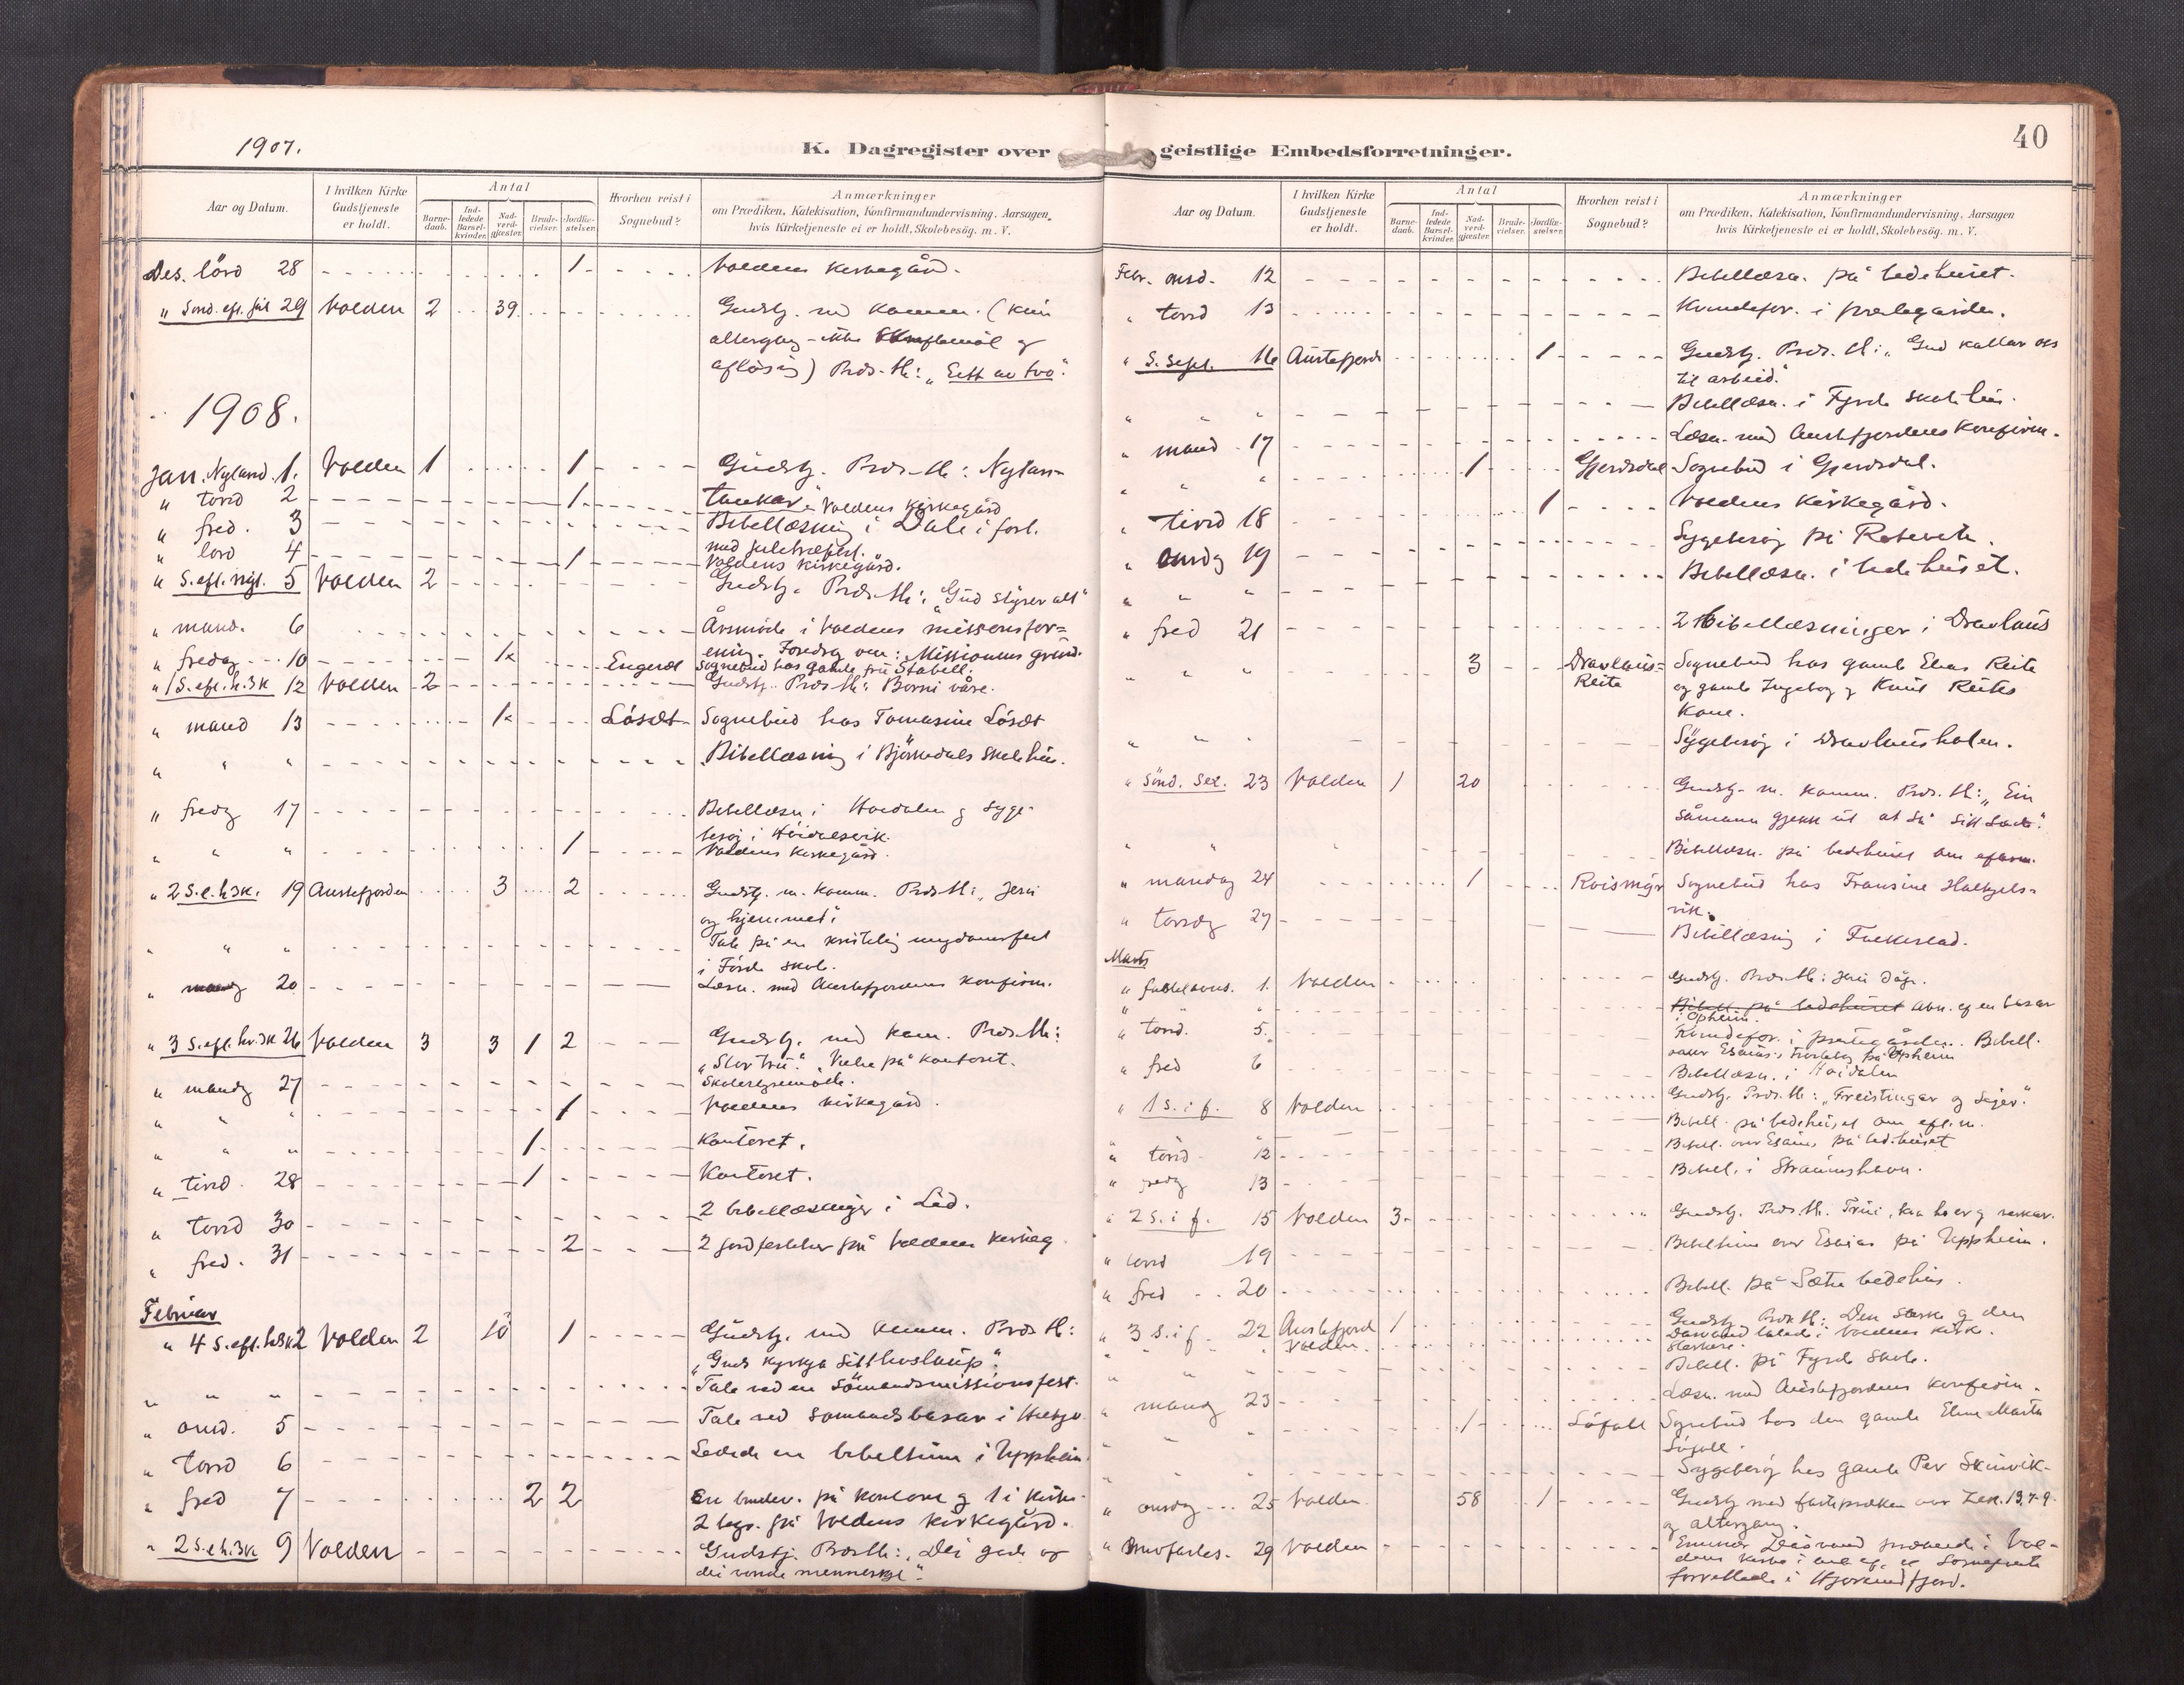 1907.
K. Dagregister over
Aar og Datum.
I hvilken Kirke Gudstjeneste er holdt.
Antal
Barne-daab.
Ind-ledede Barsel-kvinder.
Nad-verd-gjæster.
Brude-vielser.
Jordfæ-stelser.
Hvorhen reist i Sognebud?
Anmærkninger
om Prædiken, Katekisation, Konfirmandundervisning, Aarsagen,
hvis Kirketjeneste ei er holdt, Skolebesög. m. V.
Des. lörd 28 1 Voldens kirkegård.
" Sönd. eft. jul 29 Volden 2 39 Gudstj. med komm. (kun
altergang - ikke
aflösing) Præs. th: "Eitt av tvo".
1908.
Jan. Nyland. 1. Volden 1 1 Gudstj. Præs. th: Nyaars-
" torsd 2 1 tankar". Voldens kirkegård
" fred. 3 Bibellæsning i Dale i forb.
med juletræfest.
" lörd 4 1 Voldens kirkegård.
" S. eft. nyt. 5 Volden 2 Gudstj. Præs. th: "Gud styrer alt"
" mand. 6 Årsmöde i Voldens missionsfor=
ening. Foredrag om: Missionens grund.
" fredag 10 1k Engeset Sognebud hos gamle fru Stabell.
" 1 S. eft. h.3k 12 Volden 2 Gudstj. Præs th: Borni våre.
" mand 13 1k Lösæt Sognebud hos Tomasine Lösæt
" " " Bibellæsning i Björkedals skolehus.
" fredag 17 Bibellæsn. i Hoidalen og syge-
besög i Höidalsvik.
" " " 1 Voldens kirkegård.
" 2 S. e. h3k. 19 Austefjorden 3 2 Gudstj. m. komm. Præs th: "Jesu
og hjemmet".
" " " Tale på en kristelig ungdomsfest
i Förde skole.
" mandag 20 Læsn. med Austefjordens konfirm.
" 3 S. eft. h.3k 26 Volden 3 3 1 2 Gudstj. med kom. Præs. th:
"Stor tru". Vielse på kontoret.
" mandag 27 Skolestyremöde.
" " " 1 Voldens kirkegård.
" " " 1 Kontoret.
" tirsd. 28 1 Kontoret.
" torsd 30 2 bibellæsninger i Lid.
" fred. 31 2 2 jordfestelser på Voldens kirkeg.
Februar
" 4 S. eft. h3k 2 Volden 2 10 1 Gudstj. med komm. Præs th:
"Guds kyrkja
" " " Tale ved en Sömandsmissionsfest.
" onsd. 5 Tale ved sömandsbasar i
" torsd 6 Ledede en bibeltime i Uppheim
" fred 7 2 2 En brudev. på kontoret og 1 i kirke.
2 begr. på Voldens kirkegård.
" 2 S. e h. 3k 9 Volden Gudstj. Præs th: "Dei gode og
dei vonde menneskje".
40
geistlige Embedsforretninger.
Aar og Datum.
I hvilken Kirke Gudstjeneste er holdt.
Antal
Barne-daab.
Ind-ledede Barsel-kvinder.
Nad-verd-gjæster.
Brude-vielser.
Jordfæ-stelser.
Hvorhen reist i Sognebud?
Anmærkninger
om Prædiken, Katekisation, Konfirmandundervisning, Aarsagen
hvis Kirketjeneste ei er holdt, Skolebesög. m. V.
Febr. onsd. 12 Bibellæsn. på bedehuset.
" torsd 13 Kvindefor. i prestegården.
" S. Sept. 16 Austefjord 1 Gudstj. Præs. th: "Gud kallar oss
til arbeid".
" " " Bibellæsn. i Fyrde skolehus.
" mand. 17 Læsn. med Austefjordens konfirm.
" " " 1 Gjerdsdal Sognebud i Gjerdsdal.
" tirsd 18 1 Voldens kirkegård.
" onsdg 19 Sygebesög på
" " " Bibellæsn. i bedehuset.
" fred 21 2 Bibellæsninger i Dravlaus
" " " 3 Dravlaus= Reite Sognebud hos gamle Elias Reite
og gamle Ingeborg og Knut Reites
kone.
" " " Sygebesög i Dravlausholen.
" Sönd. Sex. 23 Volden 1 20 Gudstj. m. komm. Præs. th: "Ein
såmann gjekk ut at så sitt sæde".
" " " Bibellæsn. på bedehuset om efterm.
" mandag 24 1 Roismyr Sognebud hos Fransine Halkjels-
vik.
" torsdg 27 Bibellæsning i Folkestad.
Marts
" fastelavns. 1. Volden Gudstj. Præs. th: Jesu dåp.
" " " Bibell. på bedehuset Åbn. af en basar
i Opheim.
" torsd. 5. Kvindefor. i prestegården. Bibell.
over Esaias på Opheim
" fred 6 Bibellæsn. i Hoidalen
" 1 S. i f. 8 Volden Gudstj. Præs. th: "Freistingar og Sejer".
" Bibell. på bedehuset om eft.m.
" torsd 12 Bibell. over Esaias på bedehuset
" fredg 13 Bibell. i Straumshavn.
" 2 S. i f. 15 Volden 3 Gudstj. Præs. th. Trui, kva ho er og verkar.
" torsd 19 Bibeltime over Esaias på Uppheim.
" fred 20 Bibell. på Sætre bedehus.
" 3 S. i f. 22 Austefjord 1 Gudstj Præs th: Den sterke og den
sterkere.
" " " Volden talede i Voldens kirke.
" " " Bibell. på Fyrde skole.
" mandg 23 Læsn. med Austefjordens konfirm.
" " " 1 Löfoll Sognebud hos den gamle Eline Marta
Löfoll.
" " " Sygebesög hos gamle Per Skinvik-
" onsdg 25 Volden 58 1 Gudstj med fastepræken over Zak. 13,7-9
og altergang.
" 29 Volden i Vol-
dens kirke i
i Hjörundfjord.